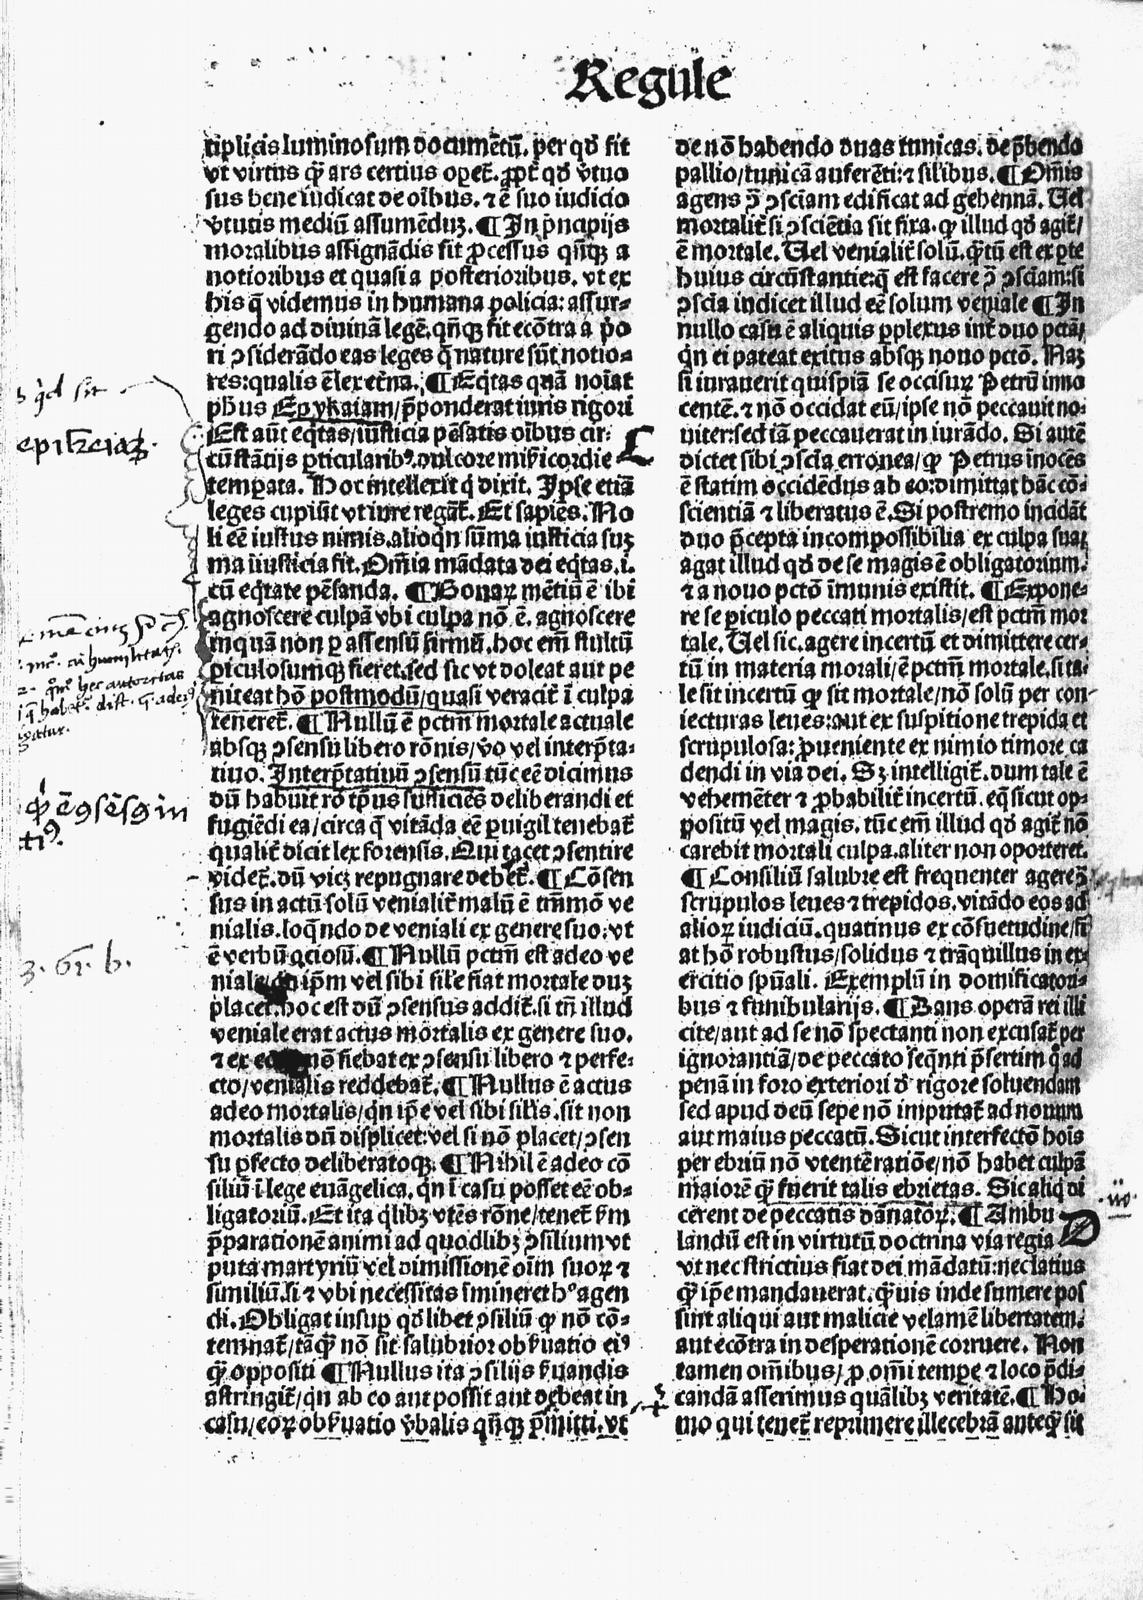 Regule
tiplicis luminosum documētū. per qd̄ fit
vt virtus q̄ʒ ars certius oꝑet̄. ꝓpt̄ qd̄ v̄tuo
sus bene iudicat de oībus. ⁊ ē suo iudicio
v̄tutis mediū assumēduʒ. ¶ In pͥncipijs
moralibus assignādis fit ꝓcessus qn̄qʒ a
notioribus et quasi a posterioribus. vt ex
his q̄ videmus in humana policia: assur⸗
gendo ad diuinā legē. qn̄qʒ fit ecōtra a pͥo
ri ↄsiderādo eas leges q̄ nature sūt notio⸗
res: qualis ē lex et̄na. ¶ Eq̄tas quā noīat
ph̄us Epykaiam/p̄ponderat iuris rigori
Est aūt eq̄tas/iusticia pēsatis oībus cir⸗
cūstātijs ꝑticularibꝰ. dulcore mīẜicordie
temperata. Hoc intellexit qͥ dixit. Ipse etiā
leges cupiūt vt iure regāt̄. Et sapiēs. No
li eē iustus nimis. alioqn̄ sūma iusticia suʒ
ma iiusticia fit. Om̄ia mādata dei eq̄tas. i.
cū eq̄tate pēsanda. ¶ Bonaꝝ mētiū ē ibi
agnoscere culpā vbi culpa nō ē. agnoscere
inquā non ꝑ assensū firmū. hoc em̄ stultū
ꝑiculosumqʒ fieret. sed sic vt doleat aut pe
niteat hō postmodū/quasi veracit̄ ī culpa
teneret̄. ¶ Nullū ē pctm̄ mortale actuale
absqʒ ↄsensu libero rōnis/v̄o vel interp̄ta⸗
tiuo. Interp̄tatiuū ↄsensū tūc eē dicimus
dū habuit rō tp̄us sufficiēs deliberandi et
fugiēdi ea/circa q̄ vitāda eē ꝑuigil tenebat̄
qualit̄ dicit lex forensis. Qui tacet ↄsentire
videt̄. dū vicʒ repugnare debet̄. ¶ Cōsen
sus in actū solū venialit̄ malū ē tn̄mō ve
nialis. loqn̄do de veniali ex genere suo: vt
ē verbū ociosū. ¶ Nullū pctm̄ est adeo ve
niale qn̄ ip̄m vel sibi sile fiat mortale duʒ
placet. hoc est dū ↄsensus addit̄. si tn̄ illud
veniale erat actus mortalis ex genere suo.
⁊ ex eo nō fiebat ex ↄsensu libero ⁊ perfe⸗
cto/venialis reddebat̄. ¶ Nullus ē actus
adeo mortalis/qn̄ ip̄e vel sibi silis. sit non
mortalis dū displicet: vel si nō placet/ↄsen
su ꝑfecto deliberatoqʒ. ¶ Nihil ē adeo cō
siliū ī lege euāgelica. qn̄ ī casu posset eē ob⸗
ligatoriū. Et ita qͥlibʒ vtēs rōne/tenet̄ ẜm
p̄parationē animi ad quodlibʒ ↄsilium vt
puta martyriū vel dimissionē oīm suoꝝ ⁊
similiū. si ⁊ vbi necessitas īmineret hͦ agen
di. Obligat insuꝑ qd̄libet ↄsiliū ꝙ nō cō⸗
temnat̄/tāq̄ʒ nō sit salubrior obẜuatio eiꝰ
q̄ʒ oppositi ¶ Nullus ita ↄsilijs ẜuandis
astringit̄/qn̄ ab eo aut possit aut debeat in
casu/eoꝝ obẜuatio v̄balis qn̄qʒ p̄mitti. vt
de nō habendo duas tunicas. de p̄bendo
pallio/tunicā auferēti: ⁊ silibus. ¶ Om̄is
agens ↄ̄ ↄsciam edificat ad gehennā. Uel
mortalit̄ si ↄsciētia sit fixa. ꝙ illud qd̄ agit̄/
ē mortale. Uel venialit̄ solū. q̄tū est ex ꝑte
huius circūstantie: q̄ est facere ↄ̄ ↄsciam: si
ↄscia iudicet illud eē solum veniale ¶ In
nullo casu ē aliquis ꝑplexus int̄ duo pctā/
qn̄ ei pateat exitus absqʒ nouo pctō. Naʒ
si iurauerit quispiā se occisuꝝ Petrū inno
centē. ⁊ nō occidat eū/ipse nō peccauit no⸗
uiter: sed iā peccauerat in iurādo. Si autē
dictet sibi ↄscia erronea/ꝙ Petrus inocēs
ē statim occidēdus ab eo: dimittat hāc cō⸗
scientiā ⁊ liberatus ē. Si postremo incidāt
duo p̄cepta incompossibilia ex culpa sua:
agat illud qd̄ de se magis ē obligatorium.
⁊ a nouo pctō īmunis existit. ¶ Expone⸗
re se ꝑiculo peccati mortalis/est pctm̄ mor
tale. Uel sic. agere incertū et dimittere cer⸗
tū in materia morali/ē pctm̄ mortale. si ta⸗
le sit incertū ꝙ sit mortale/nō solū per con⸗
iecturas leues: aut ex suspitione trepida et
scrupulosa: ꝓueniente ex nimio timore ca
dendi in via dei. Sʒ intelligit̄. dum tale ē
vehemēter ⁊ ꝓbabilit̄ incertū. eq̄ sicut op⸗
positū vel magis. tūc em̄ illud qd̄ agit̄ nō
carebit mortali culpa. aliter non oporteret.
¶ Consiliū salubre est frequenter agere ↄ̄
scrupulos leues ⁊ trepidos. vitādo eos ad
alioꝝ iudiciū. quatinus ex cōsuetudine/fi
at hō robustus/solidus ⁊ trāquillus in ex⸗
ercitio spūali. Exemplū in domificatori⸗
bus ⁊ funibularijs. ¶ Dans operā rei illi
cite/aut ad se nō spectanti non excusat̄ per
ignorantiā/de peccato seqn̄ti p̄sertim qͦad
penā in foro exteriori d̄ rigore soluendam
sed apud deū sepe nō imputat̄ ad nouum
aut maius peccatū. Sicut interfectō hoīs
per ebriū nō vtentē ratiōe/nō habet culpā
maiorē q̄ʒ fuerit talis ebrietas. Sic aliq̄ di
cerent de peccatis dānatoꝝ. ¶ Ambu
landū est in virtutū doctrina via regia
vt nec strictius fiat dei mādatū: nec latius
q̄ʒ ip̄e mandauerat. q̄ʒuis inde sumere pos
sint aliqui aut malicie velamē libertatem.
aut ecōtra in desperationē corruere. Non
tamen om̄ibus/ꝓ om̄i tempe ⁊ loco p̄di⸗
candā asserimus quālibʒ veritatē. ¶ Ho⸗
mo qui tenet̄ reprimere illecebrā anteq̄ʒ sit
C
D
qͥd sit
epikeiaʒ.
3. 61. b.
iiͥ